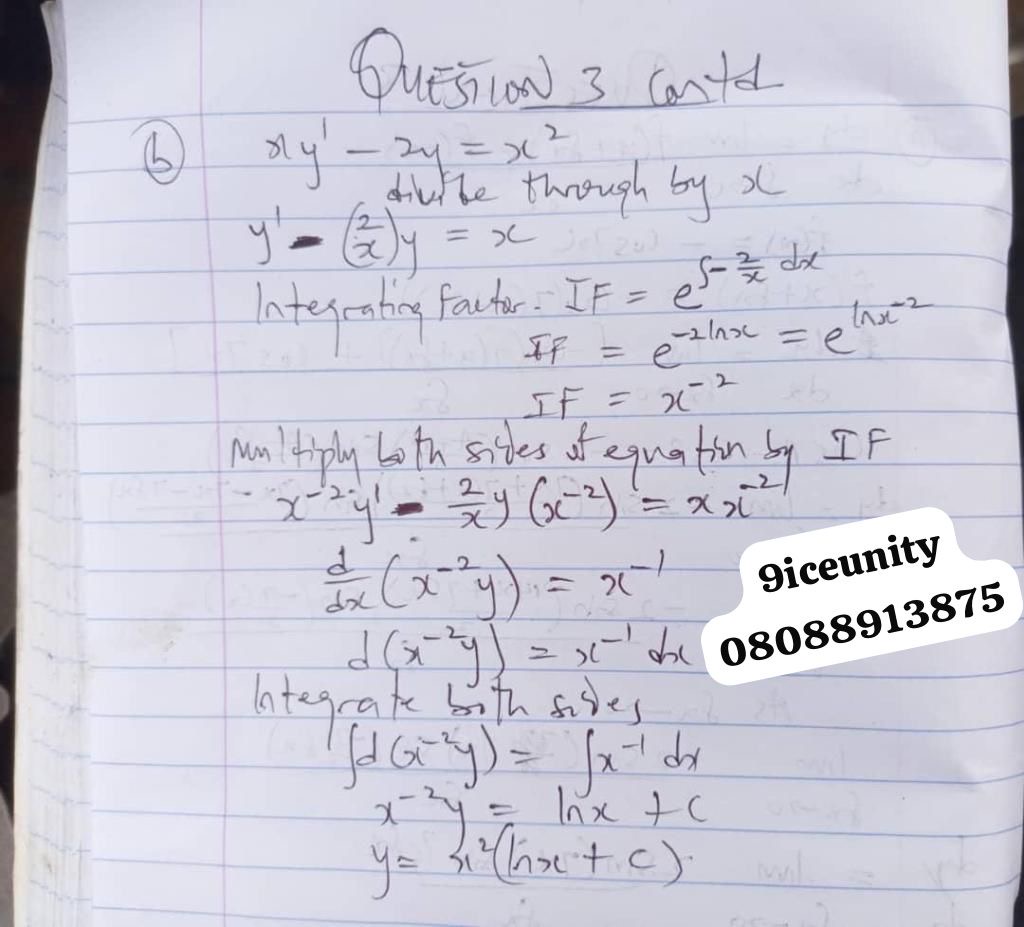 QUESTION 3 Contd
(b) xy' - 2y = x²
divide through by x
y' - (2/x)y = x
Integrating factor. IF = e^∫-2/x dx
IF = e^-2lnx = e^lnx^-2
IF = x^-2
Multiply both sides of equation by IF
x^-2 y' - 2/x y (x^-2) = x x^-2
d/dx (x^-2 y) = x^-1
d(x^-2 y) = x^-1 dx
Integrate both sides
∫d(x^-2 y) = ∫x^-1 dx
x^-2 y = lnx + c
y = x²(lnx + c)
9iceunity
08088913875